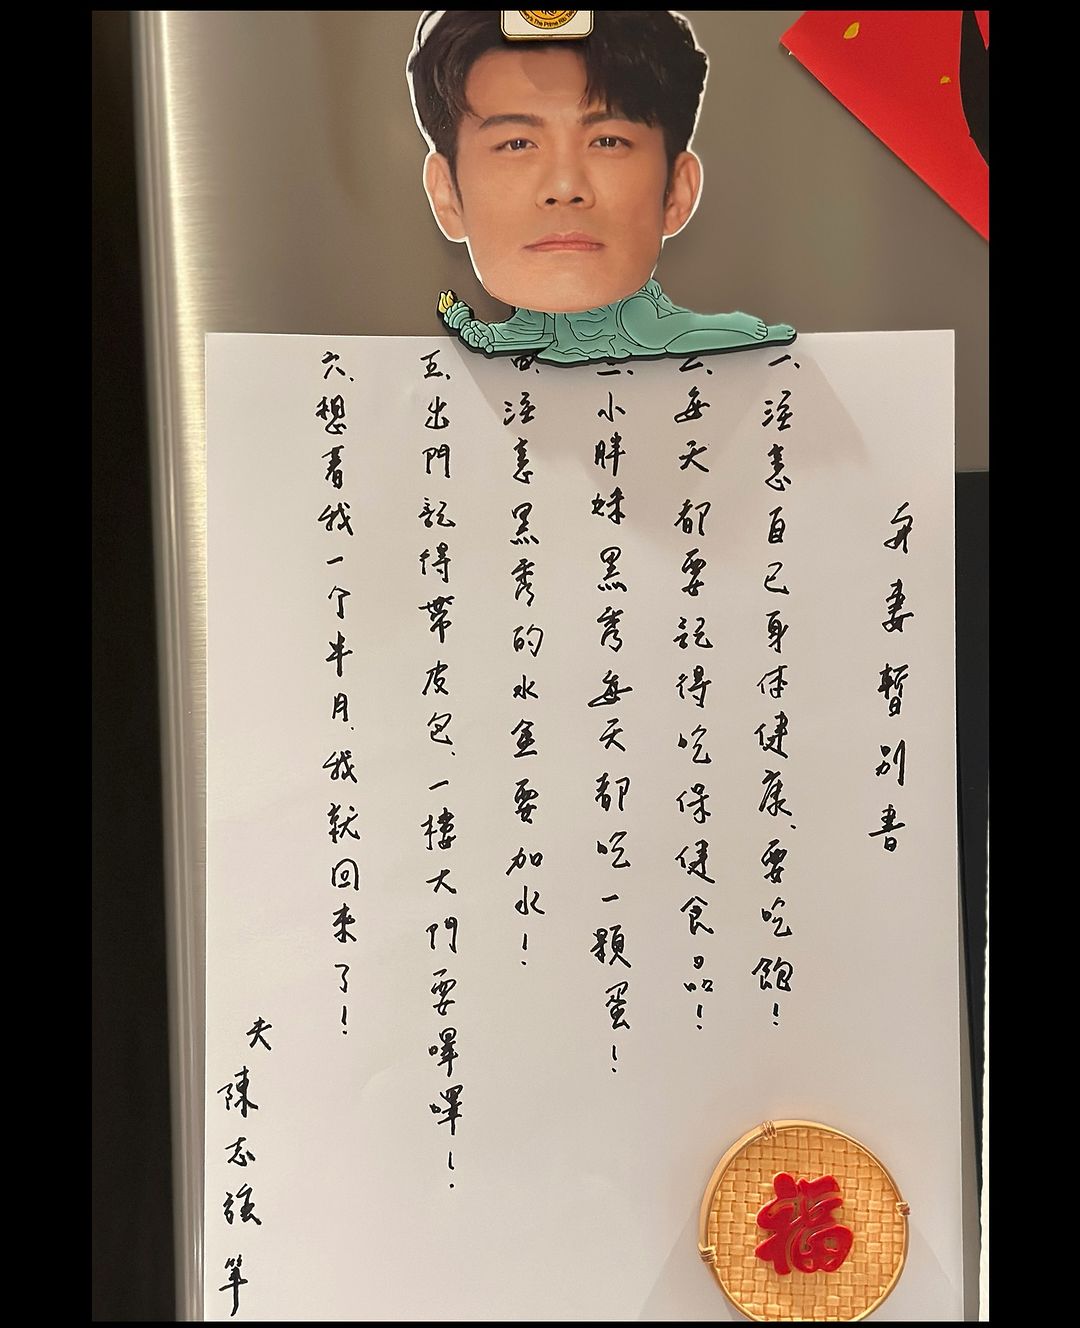 與妻暫別書
一、注意自己身体健康、要吃飽！
二、每天都要記得吃保健食品！
三、小胖妹黑秀每天都吃一顆蛋！
四、注意黑秀的水盆要加水！
五、出門記得帶皮包、一樓大門要嗶嗶！
六、想著我一个半月、我就回來了！
夫
陳志強 筆
福